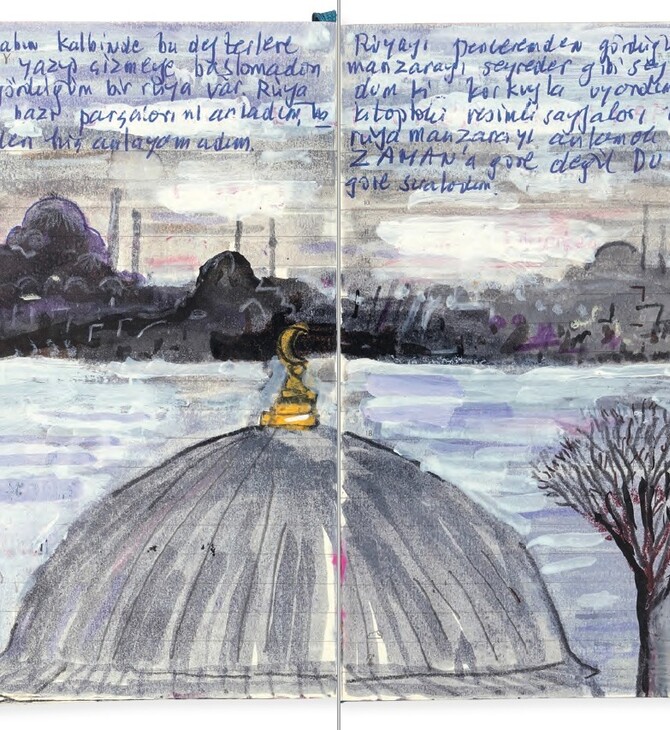 abın kalbinde bu defterlere
yazıp çizmeye başlamadan
gördüğüm bir rüya var. Rüya
bazı parçalarını anladım,
den hiç anlayamadım.
Rüyayı penceremden gördüğü
manzarayı seyreder gibi sey
dum ki korkuyla uyandım
kitaptaki resimli sayfaları
rüya manzarayı anlamak
ZAMAN'a göre değil Du
göre sıraladım.